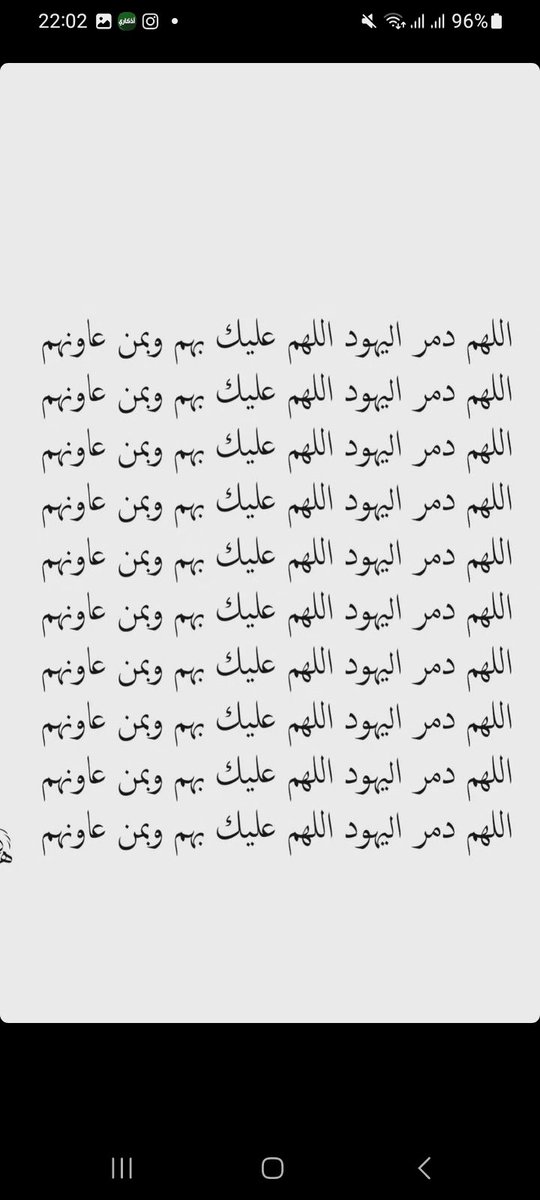 22:02 96%
اللهم دمر اليهود اللهم عليك بهم وبمن عاونهم
اللهم دمر اليهود اللهم عليك بهم وبمن عاونهم
اللهم دمر اليهود اللهم عليك بهم وبمن عاونهم
اللهم دمر اليهود اللهم عليك بهم وبمن عاونهم
اللهم دمر اليهود اللهم عليك بهم وبمن عاونهم
اللهم دمر اليهود اللهم عليك بهم وبمن عاونهم
اللهم دمر اليهود اللهم عليك بهم وبمن عاونهم
اللهم دمر اليهود اللهم عليك بهم وبمن عاونهم
اللهم دمر اليهود اللهم عليك بهم وبمن عاونهم
اللهم دمر اليهود اللهم عليك بهم وبمن عاونهم